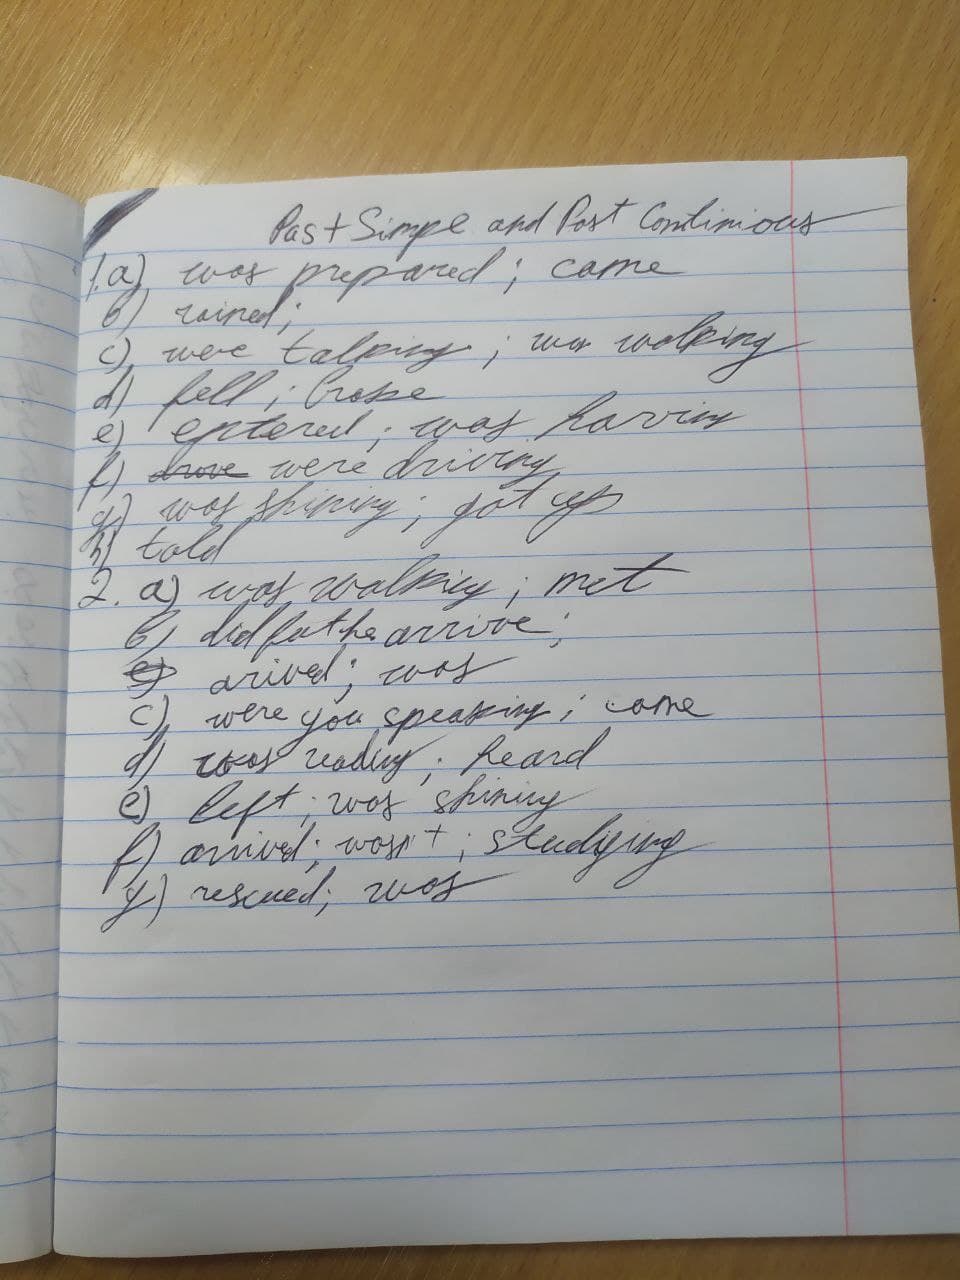 Past Simple and Past Continious
1. a) was prepared; came
b) rained;
c) were talking; was walking
d) fell; broke
e) entered; was having
f) drove were driving
g) was shining; got up
h) told
2. a) was walking; met
b) did father arrive;
c) arived; was
c) were you speaking; came
d) was reading; heard
e) left; was shining
f) arrived; wasn't; studying
g) rescued; was